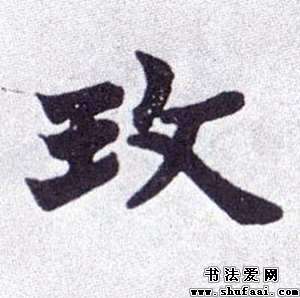 玫
书法爱网
www.shufaai.com